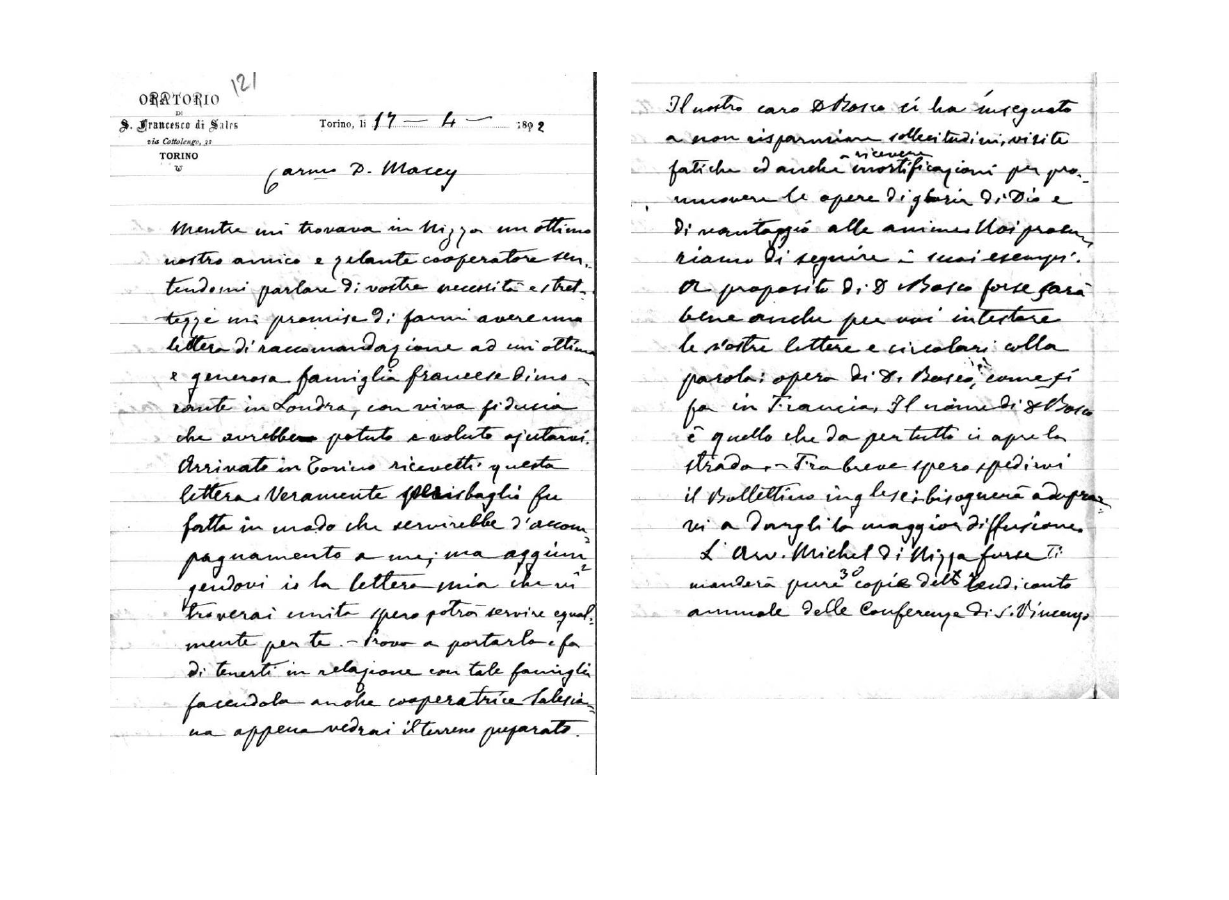 121
ORATORIO
DI
S. Francesco di Sales
via Cottolengo, 32
TORINO
Torino, li 17 — 4 — 1892
Carmo D. Macey
Mentre mi trovava in Nizza un ottimo
nostro amico e zelante cooperatore sen-
tendomi parlare di vostre necessità e stret-
tezze mi promise di farmi avere una
lettera di raccomandazione ad un'ottima
e generosa famiglia francese dimo-
rante in Londra, con viva fiducia
che avrebbe potuto e voluto ajutarvi.
Arrivato in Torino ricevetti questa
lettera. Veramente sbaglio fu
fatta in modo che servirebbe d'accom-
pagnamento a me; ma aggiun-
gendovi io la lettera mia che vi
troverai unita spero potrà servire egual-
mente per te. - Prova a portarla e fa
di tenerti in relazione con tale famiglia
facendola anche cooperatrice Salesia-
na appena vedrai il terreno preparato.
Il nostro caro D Bosco ci ha insegnato
a non risparmiare sollecitudini, visite
fatiche ed anche ricevere mortificazioni per pro-
muovere le opere di gloria di Dio e
di vantaggio alle anime. Noi procu-
riamo di seguire i suoi esempi.
A proposito di D Bosco forse farà
bene anche per voi intestare
le vostre lettere e circolari colla
parola: opera di D. Bosco, come si
fa in Francia. Il nome di D Bosco
è quello che da per tutto ci apre la
strada. - Tra breve spero spedirvi
il Bollettino inglese: bisognerà adoprar-
vi a dargli la maggior diffusione.
L'Avv. Michel di Nizza forse Ti
manderà pure 30 copie del Rendiconto
annuale delle Conferenze di S. Vincenzo